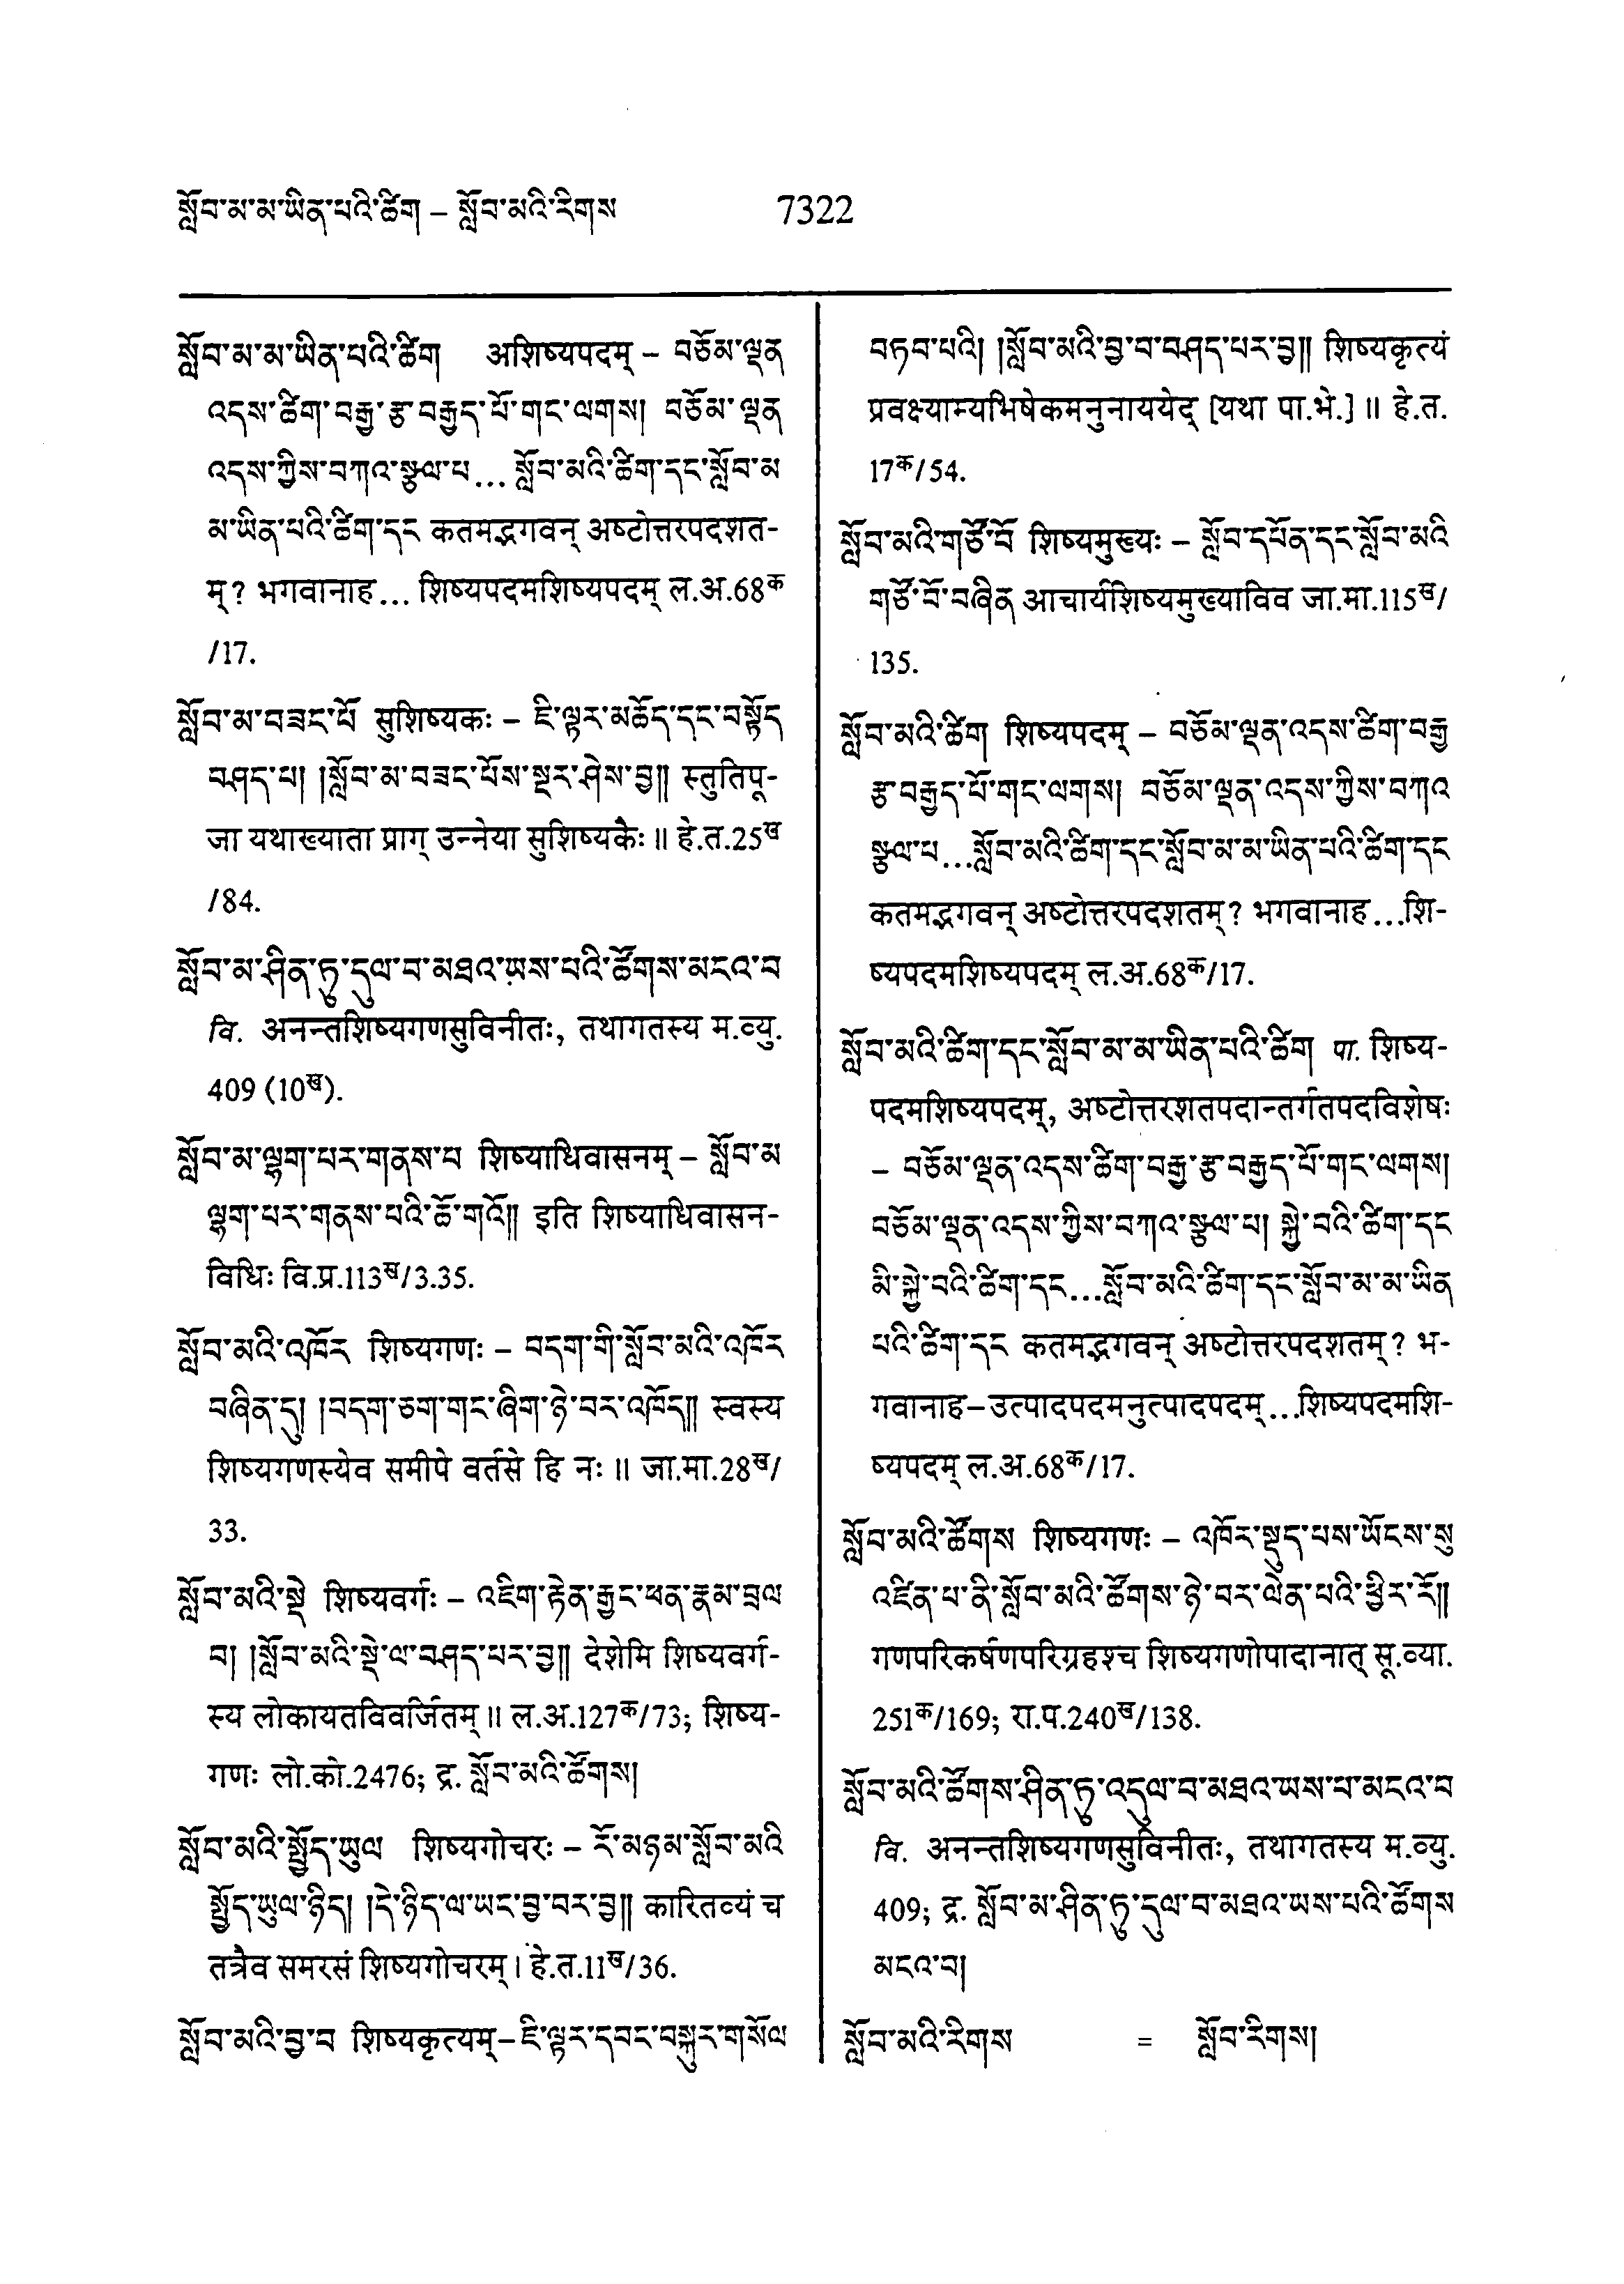 སློབ་མ་མ་ཡིན་པའི་ཚིག – སློབ་མའི་རིགས
7322
སློབ་མ་མ་ཡིན་པའི་ཚིག अशिष्यपदम् – བཅོམ་ལྡན
འདས་ཚིག་བརྒྱ་རྩ་བརྒྱད་པོ་གང་ལགས། བཅོམ་ལྡན
འདས་ཀྱིས་བཀའ་སྩལ་པ... སློབ་མའི་ཚིག་དང་སློབ་མ
མ་ཡིན་པའི་ཚིག་དང कतमद्भगवन् अष्टोत्तरपदशत-
म्? भगवानाह... शिष्यपदमशिष्यपदम् ल.अ.68क
/17.
སློབ་མ་བཟང་པོ सुशिष्यकः – ཇི་ལྟར་མཆོད་དང་བསྟོད
བཤད་པ། །སློབ་མ་བཟང་པོས་སྔར་ཤེས་བྱ།། स्तुतिपू-
जा यथाख्याता प्राग् उन्नेया सुशिष्यकैः ॥ हे.त.25ख
/84.
སློབ་མ་ཤིན་ཏུ་དུལ་བ་མཐའ་ཡས་པའི་ཚོགས་མངའ་བ
वि. अनन्तशिष्यगणसुविनीतः, तथागतस्य म.व्यु.
409 (10ख).
སློབ་མ་ལྷག་པར་གནས་པ शिष्याधिवासनम् – སློབ་མ
ལྷག་པར་གནས་པའི་ཆོ་གའོ།། इति शिष्याधिवासन-
विधिः वि.प्र.113ख/3.35.
སློབ་མའི་འཁོར शिष्यगणः – བདག་གི་སློབ་མའི་འཁོར
བཞིན་དུ། །བདག་ཅག་གང་ཞིག་ཉེ་བར་འཁོད།། स्वस्य
शिष्यगणस्येव समीपे वर्तसे हि नः ॥ जा.मा.28ख/
33.
སློབ་མའི་སྡེ शिष्यवर्गः – འཇིག་རྟེན་རྒྱང་ཕན་རྣམ་བྲལ
བ། །སློབ་མའི་སྡེ་ལ་བཤད་པར་བྱ།། देशेमि शिष्यवर्ग-
स्य लोकायतविवर्जितम् ॥ ल.अ.127क/73; शिष्य-
गणः लो.को.2476; द्र. སློབ་མའི་ཚོགས།
སློབ་མའི་སྤྱོད་ཡུལ शिष्यगोचरः – རོ་མཉམ་སློབ་མའི
སྤྱོད་ཡུལ་ཉིད། །དེ་ཉིད་ལ་ཡང་བྱ་བར་བྱ།། कारितव्यं च
तत्रैव समरसं शिष्यगोचरम् । हे.त.11ख/36.
སློབ་མའི་བྱ་བ शिष्यकृत्यम्– ཇི་ལྟར་དབང་བསྐུར་གསོལ
བཏབ་པའི། །སློབ་མའི་བྱ་བ་བཤད་པར་བྱ།། शिष्यकृत्यं
प्रवक्ष्याम्यभिषेकमनुनाययेद् [यथा पा.भे.] ॥ हे.त.
17क/54.
སློབ་མའི་གཙོ་བོ शिष्यमुख्यः – སློབ་དཔོན་དང་སློབ་མའི
གཙོ་བོ་བཞིན आचार्यशिष्यमुख्याविव जा.मा.115ख/
135.
སློབ་མའི་ཚིག शिष्यपदम् – བཅོམ་ལྡན་འདས་ཚིག་བརྒྱ
རྩ་བརྒྱད་པོ་གང་ལགས། བཅོམ་ལྡན་འདས་ཀྱིས་བཀའ
སྩལ་པ...སློབ་མའི་ཚིག་དང་སློབ་མ་མ་ཡིན་པའི་ཚིག་དང
कतमद्भगवन् अष्टोत्तरपदशतम्? भगवानाह...शि-
ष्यपदमशिष्यपदम् ल.अ.68क/17.
སློབ་མའི་ཚིག་དང་སློབ་མ་མ་ཡིན་པའི་ཚིག पा. शिष्य-
पदमशिष्यपदम्, अष्टोत्तरशतपदान्तर्गतपदविशेषः
– བཅོམ་ལྡན་འདས་ཚིག་བརྒྱ་རྩ་བརྒྱད་པོ་གང་ལགས།
བཅོམ་ལྡན་འདས་ཀྱིས་བཀའ་སྩལ་པ། སྐྱེ་བའི་ཚིག་དང
མི་སྐྱེ་བའི་ཚིག་དང...སློབ་མའི་ཚིག་དང་སློབ་མ་མ་ཡིན
པའི་ཚིག་དང कतमद्भगवन् अष्टोत्तरपदशतम्? भ-
गवानाह–उत्पादपदमनुत्पादपदम्...शिष्यपदमशि-
ष्यपदम् ल.अ.68क/17.
སློབ་མའི་ཚོགས शिष्यगणः – འཁོར་སྡུད་པས་ཡོངས་སུ
འཛིན་པ་ནི་སློབ་མའི་ཚོགས་ཉེ་བར་ལེན་པའི་ཕྱིར་རོ།།
गणपरिकर्षणपरिग्रहश्च शिष्यगणोपादानात् सू.व्या.
251क/169; रा.प.240ख/138.
སློབ་མའི་ཚོགས་ཤིན་ཏུ་འདུལ་བ་མཐའ་ཡས་པ་མངའ་བ
वि. अनन्तशिष्यगणसुविनीतः, तथागतस्य म.व्यु.
409; द्र. སློབ་མ་ཤིན་ཏུ་དུལ་བ་མཐའ་ཡས་པའི་ཚོགས
མངའ་བ།
སློབ་མའི་རིགས = སློབ་རིགས།